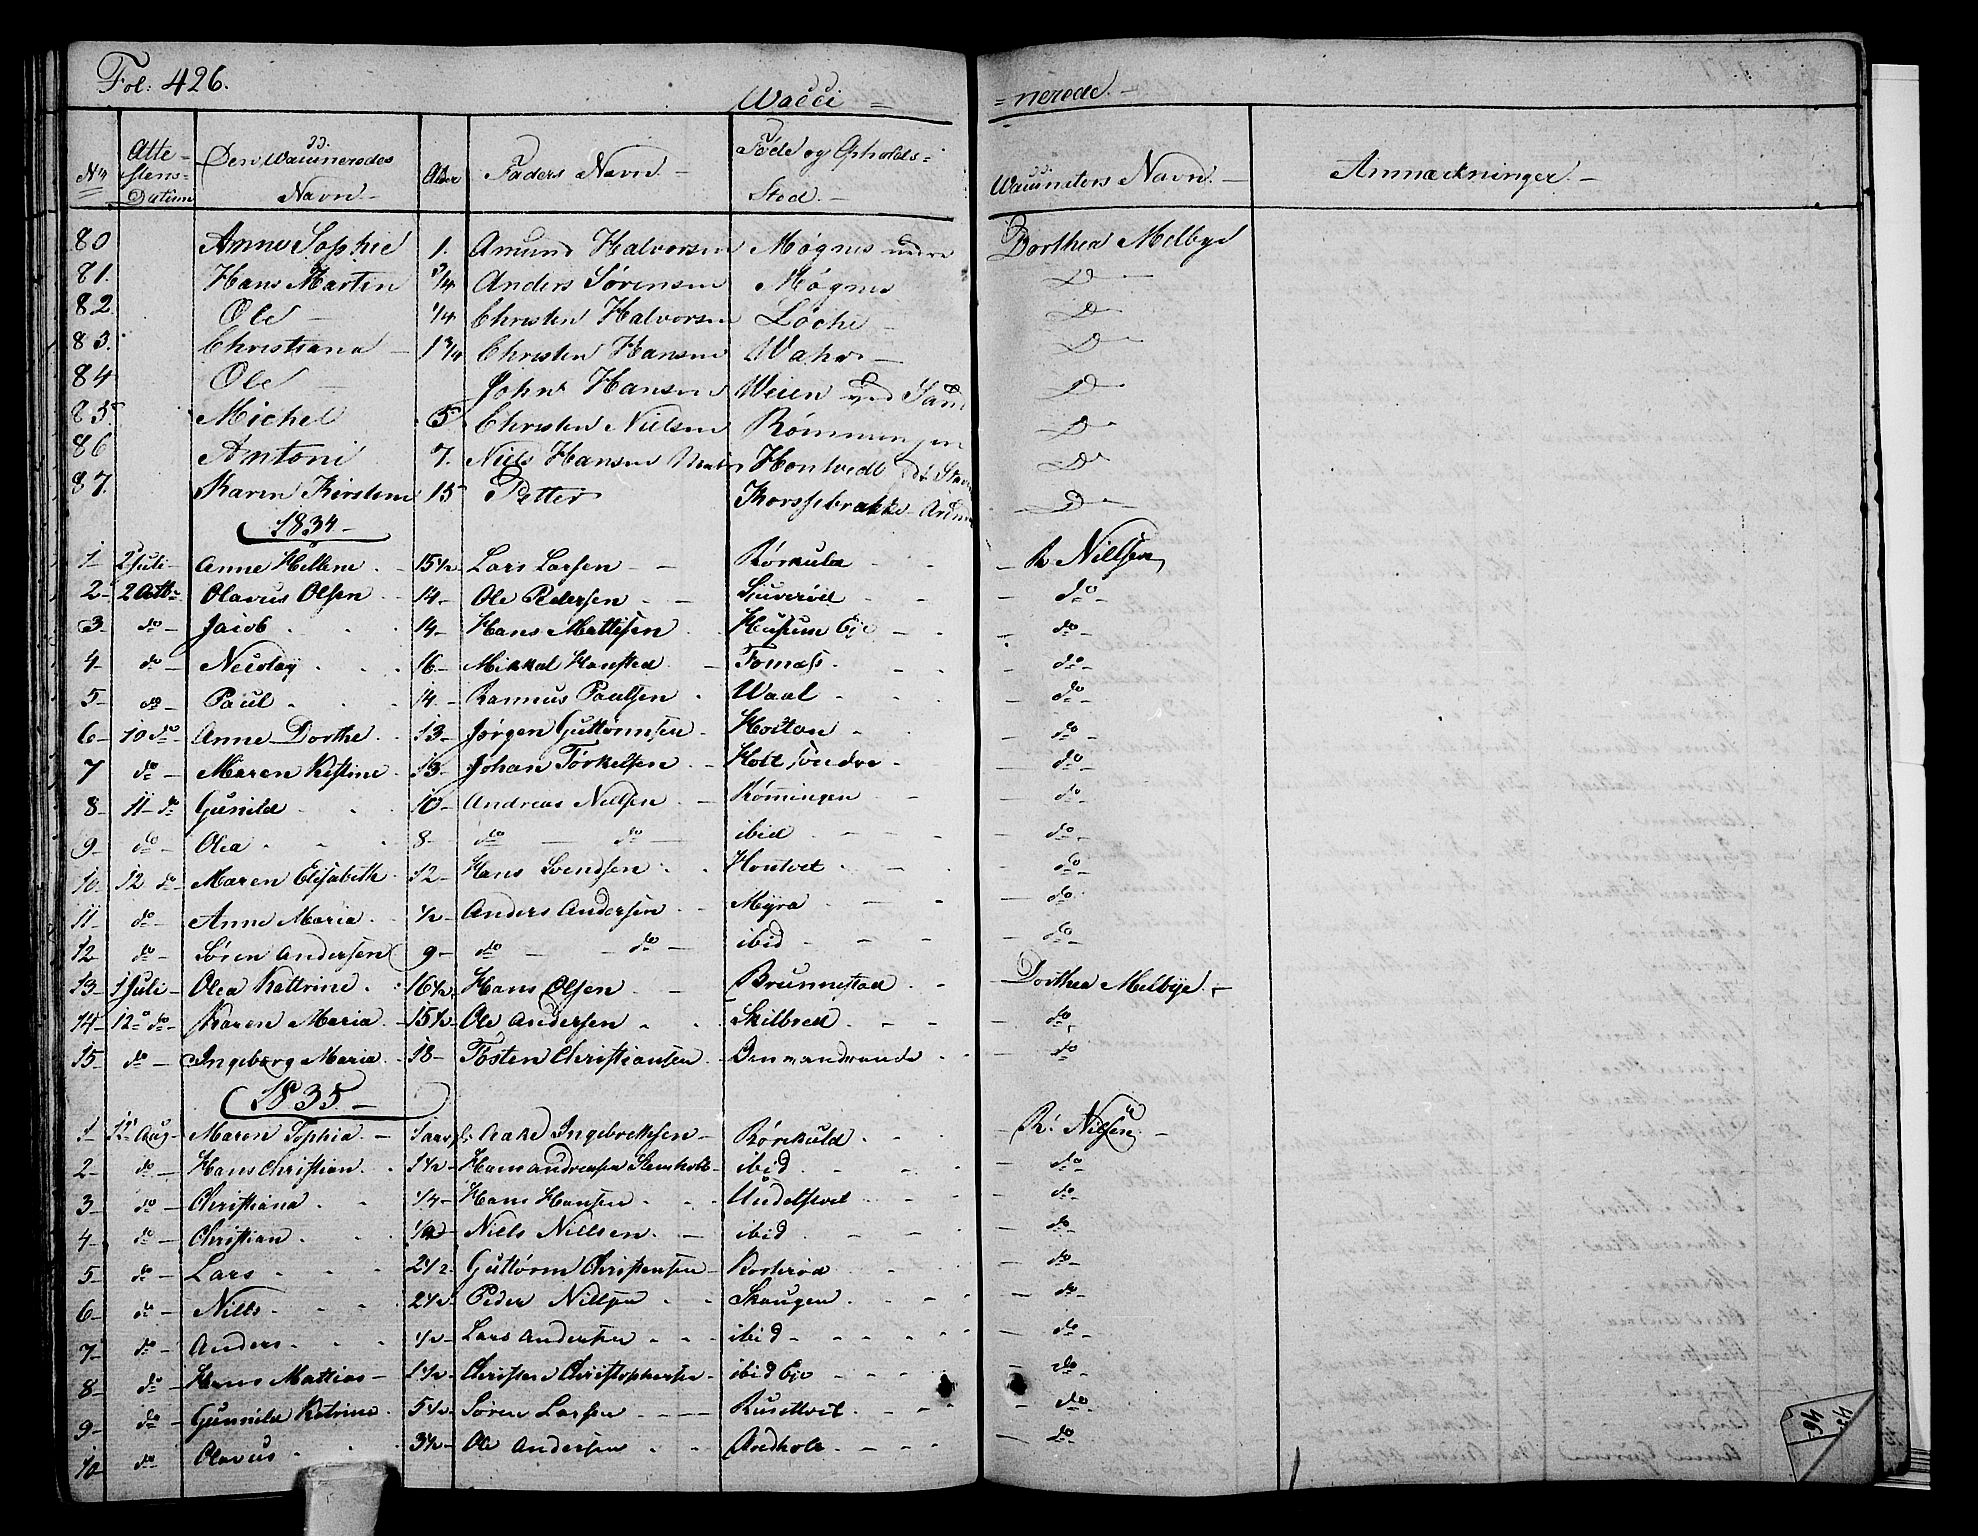 Fol: 426.
Wacci = = nerede. -
No Atte- stens- Datum Den Waccineredes Navn - Alder Faders Navn. - Føde og Opholds- Sted. - Waccineters Navn. - Anmærkninger. -
80 Anne Sophie 1. Amund Halvorsen Møgnes nedre Dorthea Melbye
81. Hans Martin 3/4 Anders Sørensen Møgnes D
82. Ole 1/4 Christen Halvorsen Løche D
83. Christiana 1 3/4 Christen Hansen D
84 Ole - John Hansen Weien ved Sand D
85. Michel 5 Christen Nielsen Rømmingen D
86 Antoni 7. Niels Hansen Hontvedt D
87. Karen Kirstine 15 Petter Korssebrække D
1834 -
1 - 2 Juli - Anne Hellene - 15 1/2 - Lars Larsen - - Rørkula - - R Nillsen
2 - 2 Octb: Olavus Olsen - 14 - Ole Pedersen - - - - do -
3 - do - Jacob - - 14 - Hans Mattisen - Husum Eje - - do -
4 - do - Nicolay - - 16 - Mikkal Hansen - Tomas - - - do -
5 - do - Paul - - 14. - Rasmus Paulsen - Waal - - - do -
6 - 10 do - Anne Dorthe - 13 - Jørgen Guttormsen - Holtan - - do -
7 do - Maren Kistine - 13 - Johan Torkelsen - Holt søndre - - do -
8 - 11 - do - Gunild - - 10 - Andreas Nillsen - Rømingen - - do -
9 - do - Olea - - 8 - do - do - ibid - - - do -
10 - 12 do - Maren Elisabeth - 12 - Hans Svendsen - - Hontvet - - - do -
11 - do - Anne Maria - 1/2 - Anders Andersen - - Myra - - - do -
12 - do - Søren Andersen 9 - do - do - ibid - - - do -
13 - 1 Juli - Olea Kattrine - 16 1/2 - Hans Olsen - Brunnestad - - Dorthea Melbye. -
14 - 12 do - Karen Maria - 15 1/2 - Ole Andersen - - Skilbred - - - do -
15 - do - Ingeborg Maria - 18 - Tosten Christiansen - - - do
1835. -
1 - 12 Aug - Maren Sophia - 1 aar gl: Aake Ingebrettsen - Rørekuld - - - R: Nilsen -
2 - do - Hans Christian - 1 1/2 - Hans Andreasen Stensholt - ibid - - - do -
3 - do - Christiana - - 1/4 - Hans Hansen - - Undelsvet - - - do -
4 - do - Christian - - Niels Nillsen - - ibid - - - do -
5 - do - Lars - - 2 1/2 - Guttorm Christensen - - - do -
6 - do - Nills - - 2 1/2 - Peder Nillsen - - Skaugen - - - do -
7 - do - Anders - - 1/2 - Lars Andersen - - ibid - - - do -
8 - do - Hans Mattias - 1 1/2 - Christen Christophersen - ibid Eje - - - do -
9 - do - Gunnild Katrine - 5 1/2 - Søren Larsen - - Rusettvet - - - do -
10 - do - Olavus - - 3 1/2 - Ole Andersen - - Aredholt - - - do -